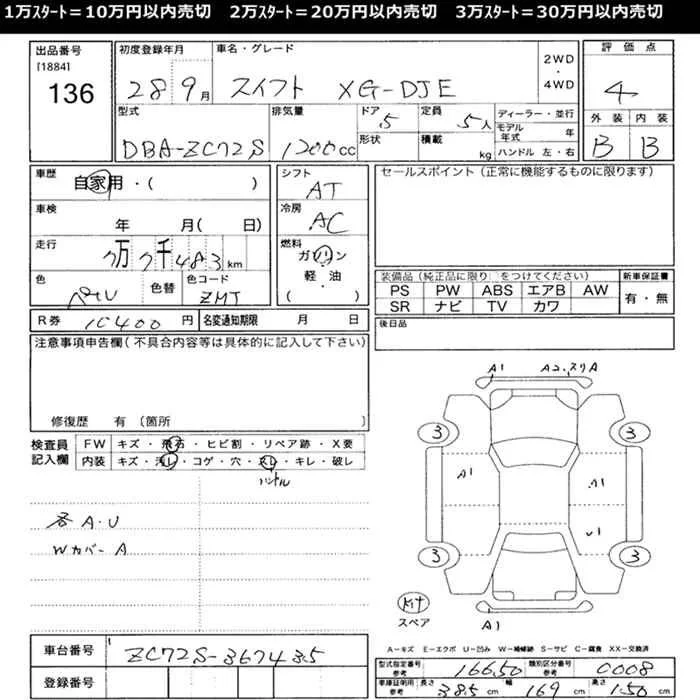 1万ｽﾀｰﾄ＝10万円以内売切　2万ｽﾀｰﾄ＝20万円以内売切　3万ｽﾀｰﾄ＝30万円以内売切
出品番号
[1884]
136
初度登録年月
28 9月
車名・グレード
スイフト XG-DJE
2WD
・
4WD
評価点
4
型式
DBA-ZC72S
排気量
1200cc
ドア
5
形状
定員
5人
積載
kg
ディーラー・並行
モデル年式 年
ハンドル 左・右
外装 内装
B B
車歴
自家用・( )
車検
年 月( 日)
走行
7万7千483km
色
色替
色コード
ZMT
シフト
AT
冷房
AC
燃料
ガソリン
軽・油
( )
セールスポイント（正常に機能するものに限ります）
装備品（純正品に限り○をつけてください）
PS PW ABS エアB AW
SR ナビ TV カワ
新車保証書
有・無
R券 10400円 名変通知期限 月 日
後日品
注意事項申告欄（不具合内容等は具体的に記入して下さい）
修復歴 有（箇所
検査員
記入欄
FW キズ・飛石・ヒビ割・リペア跡・X要
内装 キズ・汚レ・コゲ・穴・スレ・キレ・破レ
ハンドル
各A・U
WカバーA
A1 A2
3 3
A1 A1
U1
3 3
スペア
A1
A－キズ E－エクボ U－凹み W－補修跡 S－サビ C－腐食 XX－交換済
車台番号 ZC72S-367435
登録番号
型式指定番号 参考 16650 類別区分番号 参考 0008
車庫証明用 参考 長さ 385cm 幅 169cm 高さ 150cm